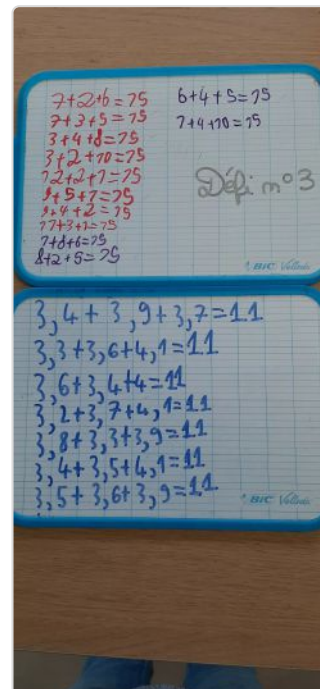 7+2+6=15
7+3+5=15
3+4+8=15
3+2+10=15
12+2+1=15
9+5+1=15
9+4+2=15
11+3+1=15
1+8+6=15
8+2+5=15
6+4+5=15
1+4+10=15
Défi n°3
BIC Velleda
3,4+3,9+3,7=11
3,3+3,6+4,1=11
3,6+3,4+4=11
3,2+3,7+4,1=11
3,8+3,3+3,9=11
3,4+3,5+4,1=11
3,5+3,6+3,9=11
BIC Velleda